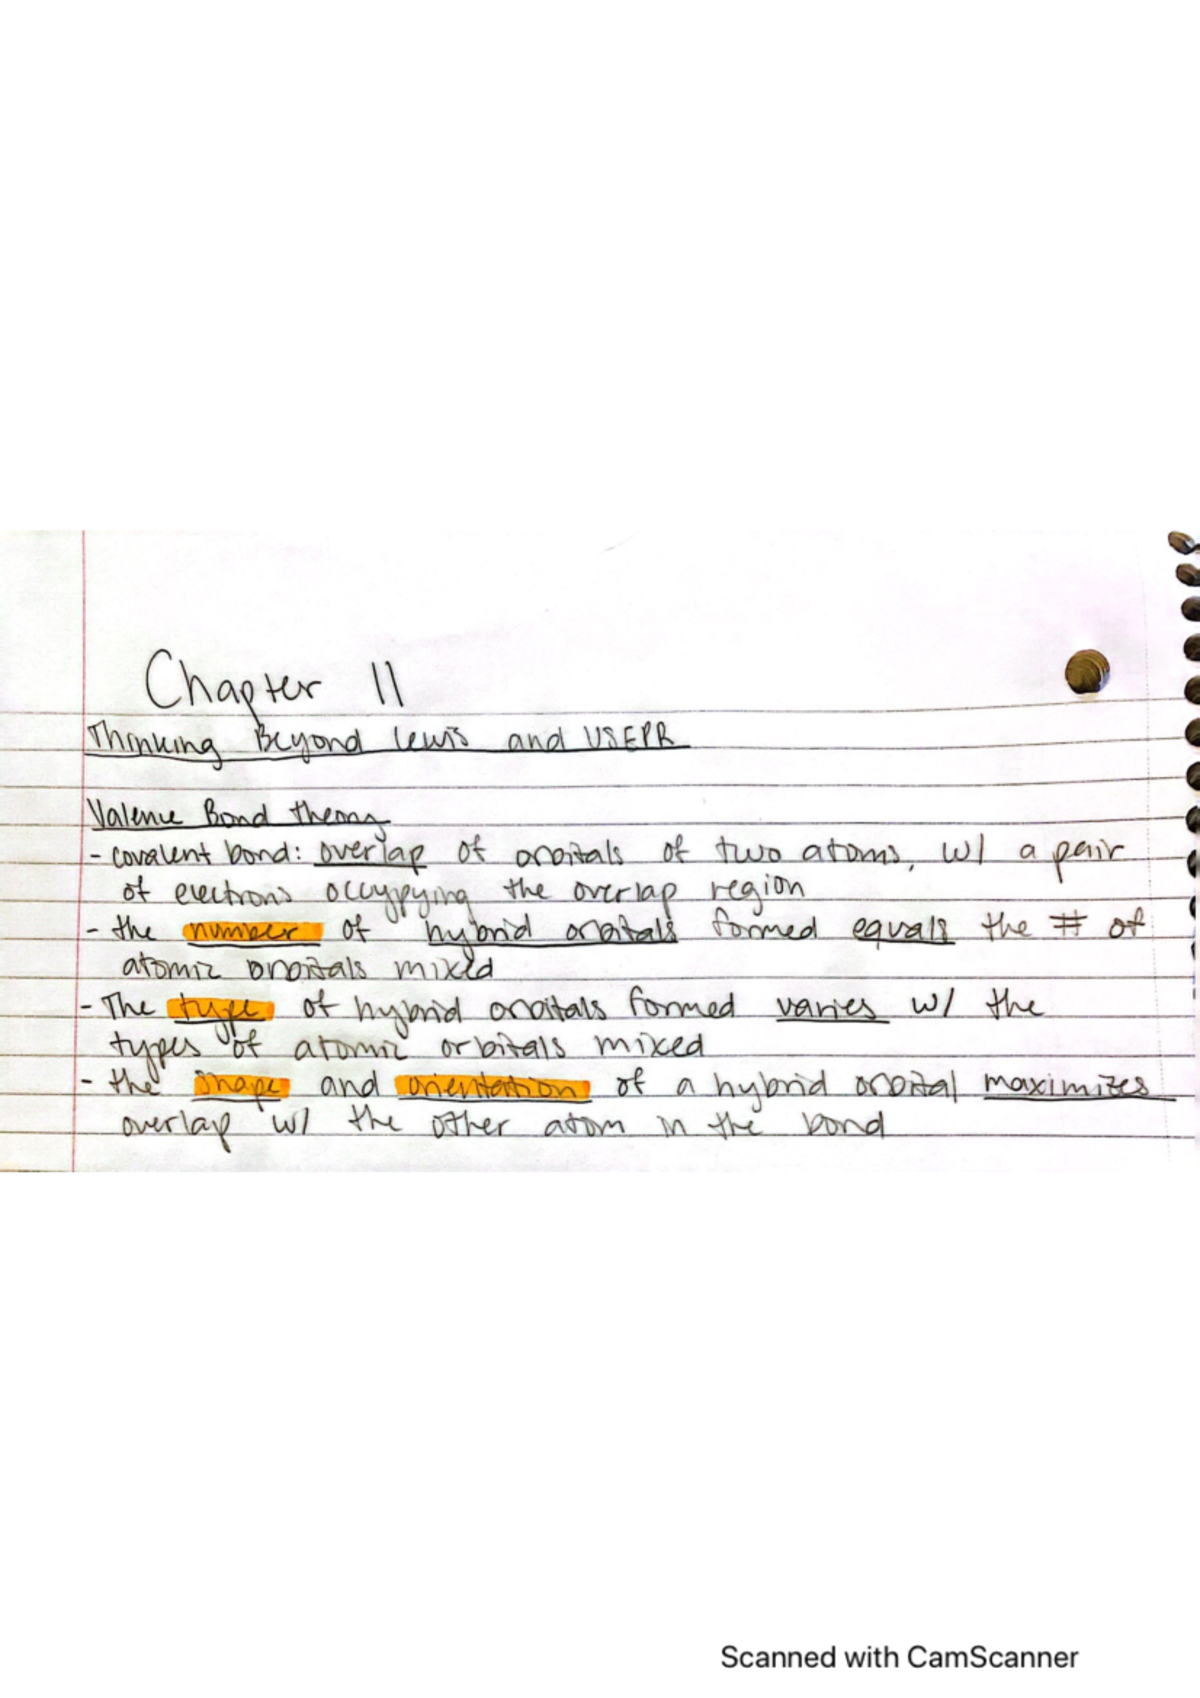 Chapter 11
Thinking Beyond Lewis and VSEPR
Valence Bond theory
- covalent bond: overlap of orbitals of two atoms, w/ a pair
of electrons occypying the overlap region
- the number of hybrid orbitals formed equals the # of
atomic orbitals mixed
- The type of hybrid orbitals formed varies w/ the
types of atomic orbitals mixed
- the shape and orientation of a hybrid orbital maximizes
overlap w/ the other atom in the bond
Scanned with CamScanner